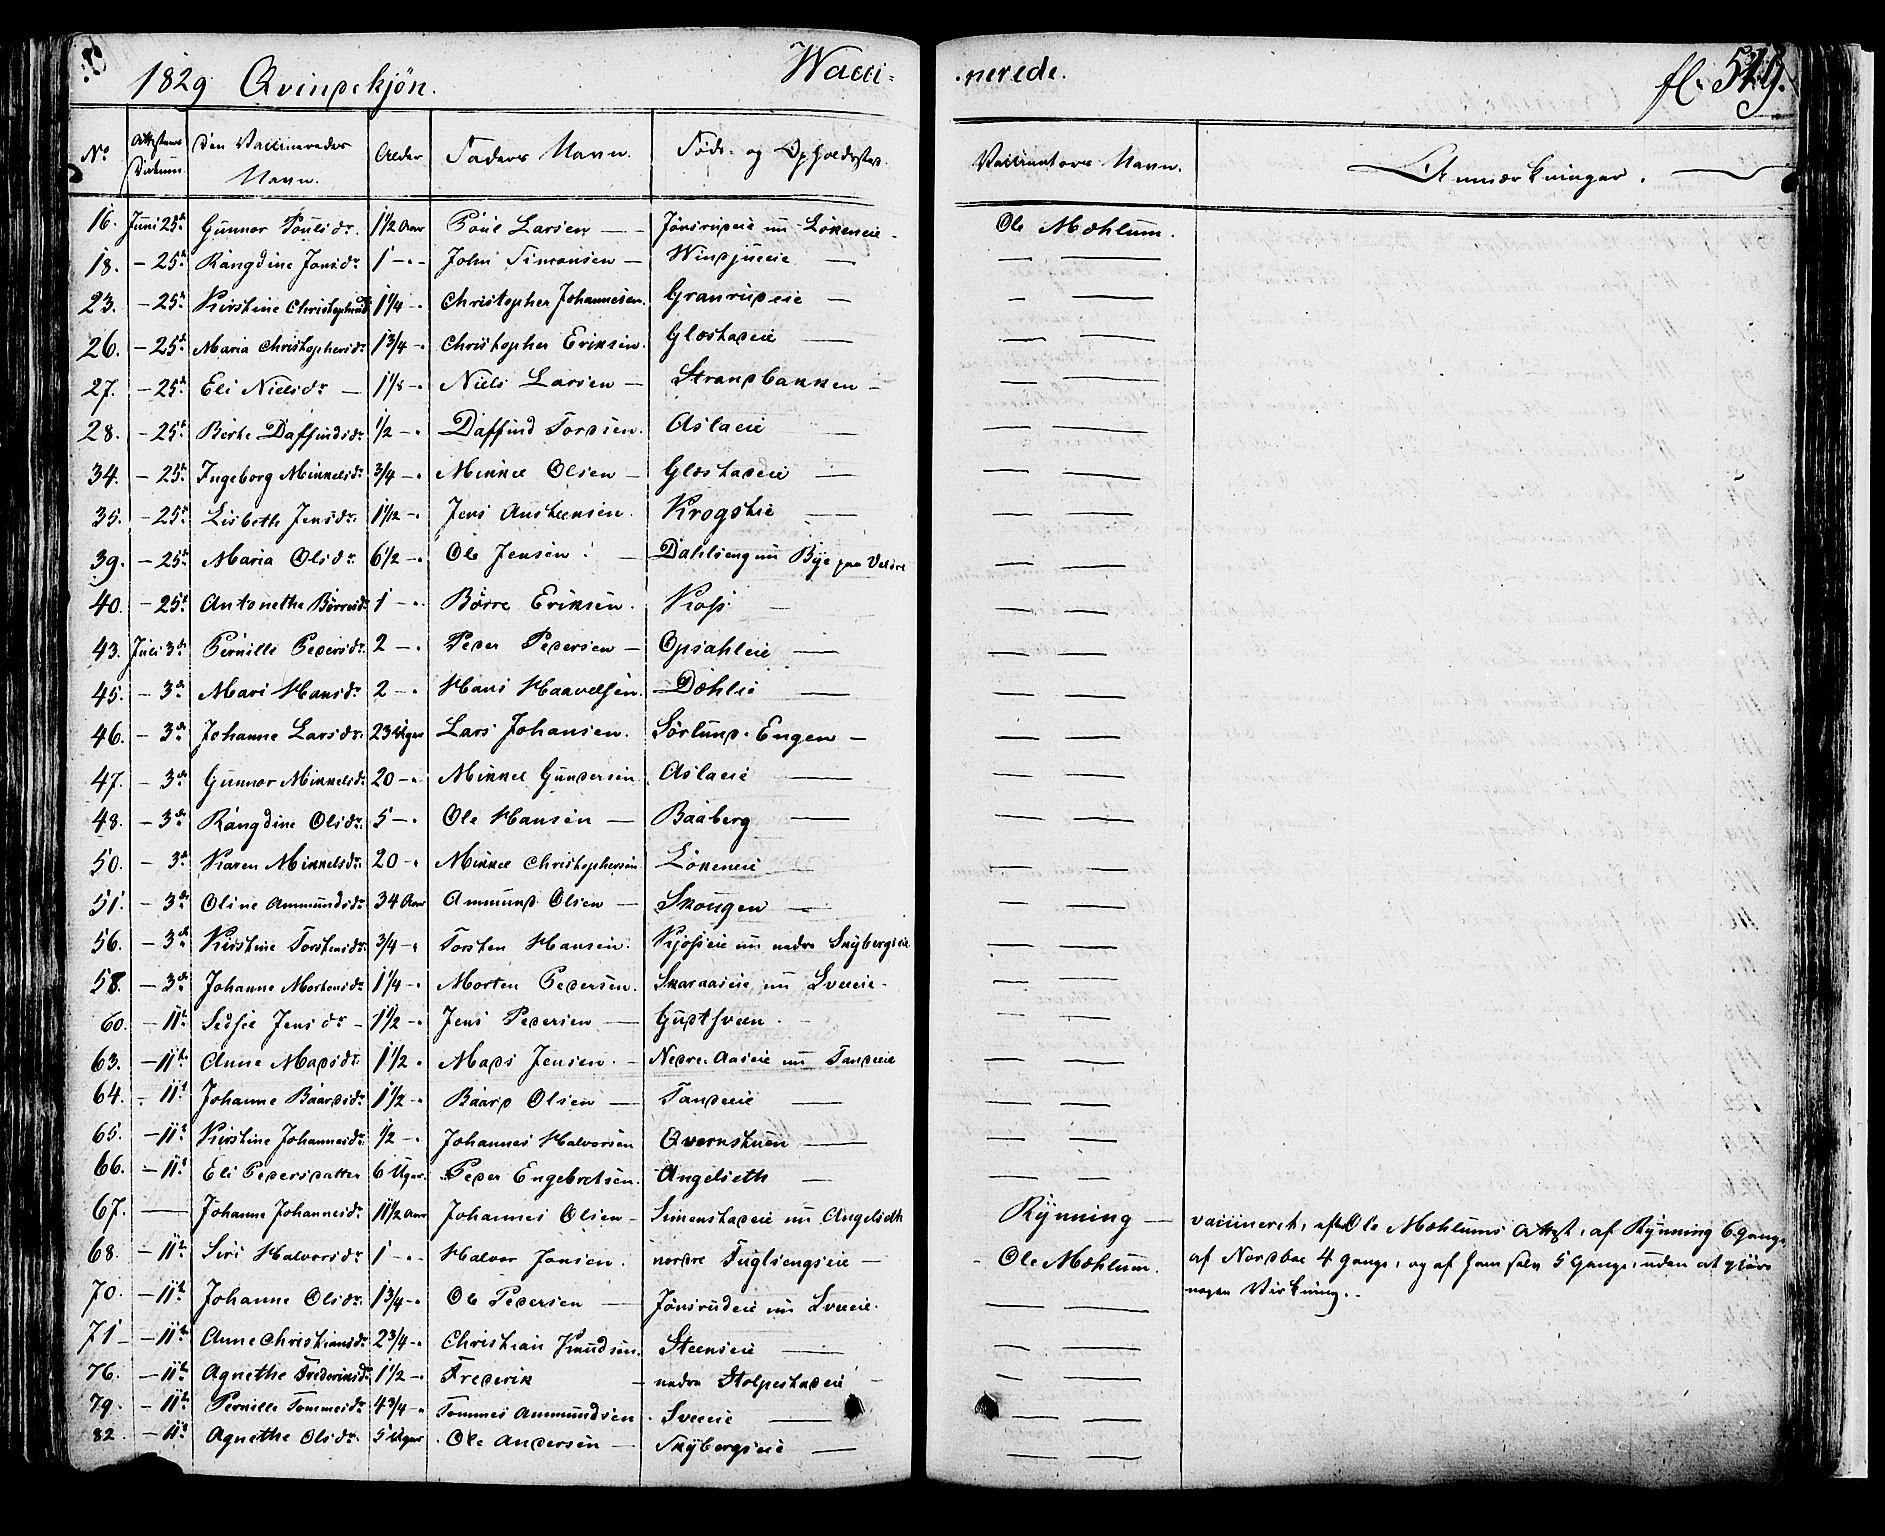 1829 Qvindekjön. Wacci- nerede. fl. 529.
No Attestens Datum Den Vaccineredes Navn. Alder Faders Navn. Føde- og Opholdssted. Vaccinators Navn. Anmærkninger.
16. Juni 25de Gunnor Poulsdr. 1 1/2 Aar Poul Larsen — Jönsrudeie nu Lökeneie - Ole Mæhlum.
18. - 25de Rangdine Jonsdr. 1 - - John Simonsen - Windjueeie — — —
23. - 25de Kirstine Christophersdr 1 1/4 - Christopher Johannesen. Granrudeie — — —
26. - 25de Maria Christophersdr. 1 3/4 - Christopher Eriksen. Glæstadeie — — —
27. - 25de Eli Nielsdr. — 1 1/8 - Niels Larsen — Strandbakken - — —
28. - 25de Berte Daffindsdr. 1/2 - Daffind Tordsen. Aslaeie — — —
34. - 25de Ingeborg Mikkelsdr. 3/4 - Mikkel Olsen — Glæstadeie — — —
35. - 25de Lisbeth Jensdr. 1 1/12 - Jens Austeensen. Krogstie — — —
39. - 25de Maria Olsdr. 6 1/2 - Ole Jensen. — Dahlseng nu Bye paa Veldre — —
40. - 25de Antonethe Börresdr 1 - Börre Eriksen. Koss — — —
43. Juli 3de Pernille Pedersdr. 2 - Peder Pedersen — Opsahleie — — —
45. - 3de Mari Hansdr. 2 - Hans Haavelsen. Dæhlie — — —
46. - 3de Johanne Larsdr. 23 Uger Lars Johansen. Sörlund-Engen — — —
47. - 3de Gunnor Mikkelsdr. 20 - Mikkel Gundersen Aslaeie — — —
48. - 3de Rangdine Olsdr. 5 - Ole Hansen — Baaberg — — —
50. - 3de Karen Mikkelsdr. 20 - Mikkel Christophersen Lökeneie — —
51. - 3de Oline Ammundsdr. 34 Aar Ammund Olsen — Skougen — — —
56. - 3de Kirstine Torstensdr. 3/4 - Torsten Hansen. Kjosseie nu nedre Skybergseie — —
58. - 3de Johanne Mortensdr. 1 1/4 - Morten Pedersen. Skaraaseie nu Sveeie - — —
60. - 11te Sidsie Jensdr - 1 1/2 - Jens Pedersen — Gustsveen. — —
63. - 11te Anne Madsdr. 1 1/2 - Mads Jensen. - Nedre-Aaseie nu Tandeeie — —
64. - 11te Johanne Baardsdr. 1 1/2 - Baard Olsen — Tandeeie — — —
65. - 11te Kirstine Johannesdr. 1/2 - Johannes Halvorsen Qvernstuen — — —
66. - 11te Eli Pedersdatter 6 Uger. Peder Engebretsen. Angelseth — — —
67. — Johanne Johannesdr. 11 1/2 Aar Johannes Olsen - Simenstadeie nu Angelseth Rÿnning — vaccineret, efter Ole Mæhlums Attest, af Rÿnning 6 Gange,
68. - 11te Siri Halvorsdr. 1 - - Halvor Jonsen. nordre Fuglsengseie — Ole Mæhlum. af Nordboe 4 Gange, og af ham selv 5 Gange, uden at gjöre
70. - 11te Johanne Olsdr. 1 3/4 - Ole Pedersen — Jönsrudeie nu Sveeie. — — nogen Virkning. -
71 - 11te Anne Christiansdr. 2 3/4 - Christian Knudsen. Steenseie — — —
76. - 11te Agnethe Frederiksdr. 1 1/2 - Frederik - nedre Stolpestadeie - — —
79. - 11te Pernille Tommesdr. 4 3/4 - Tommes Ammundsen. Sveeie — — —
82 - 11te Agnethe Olsdr. 5 Uger. Ole Andersen — Skÿbergseie — — —